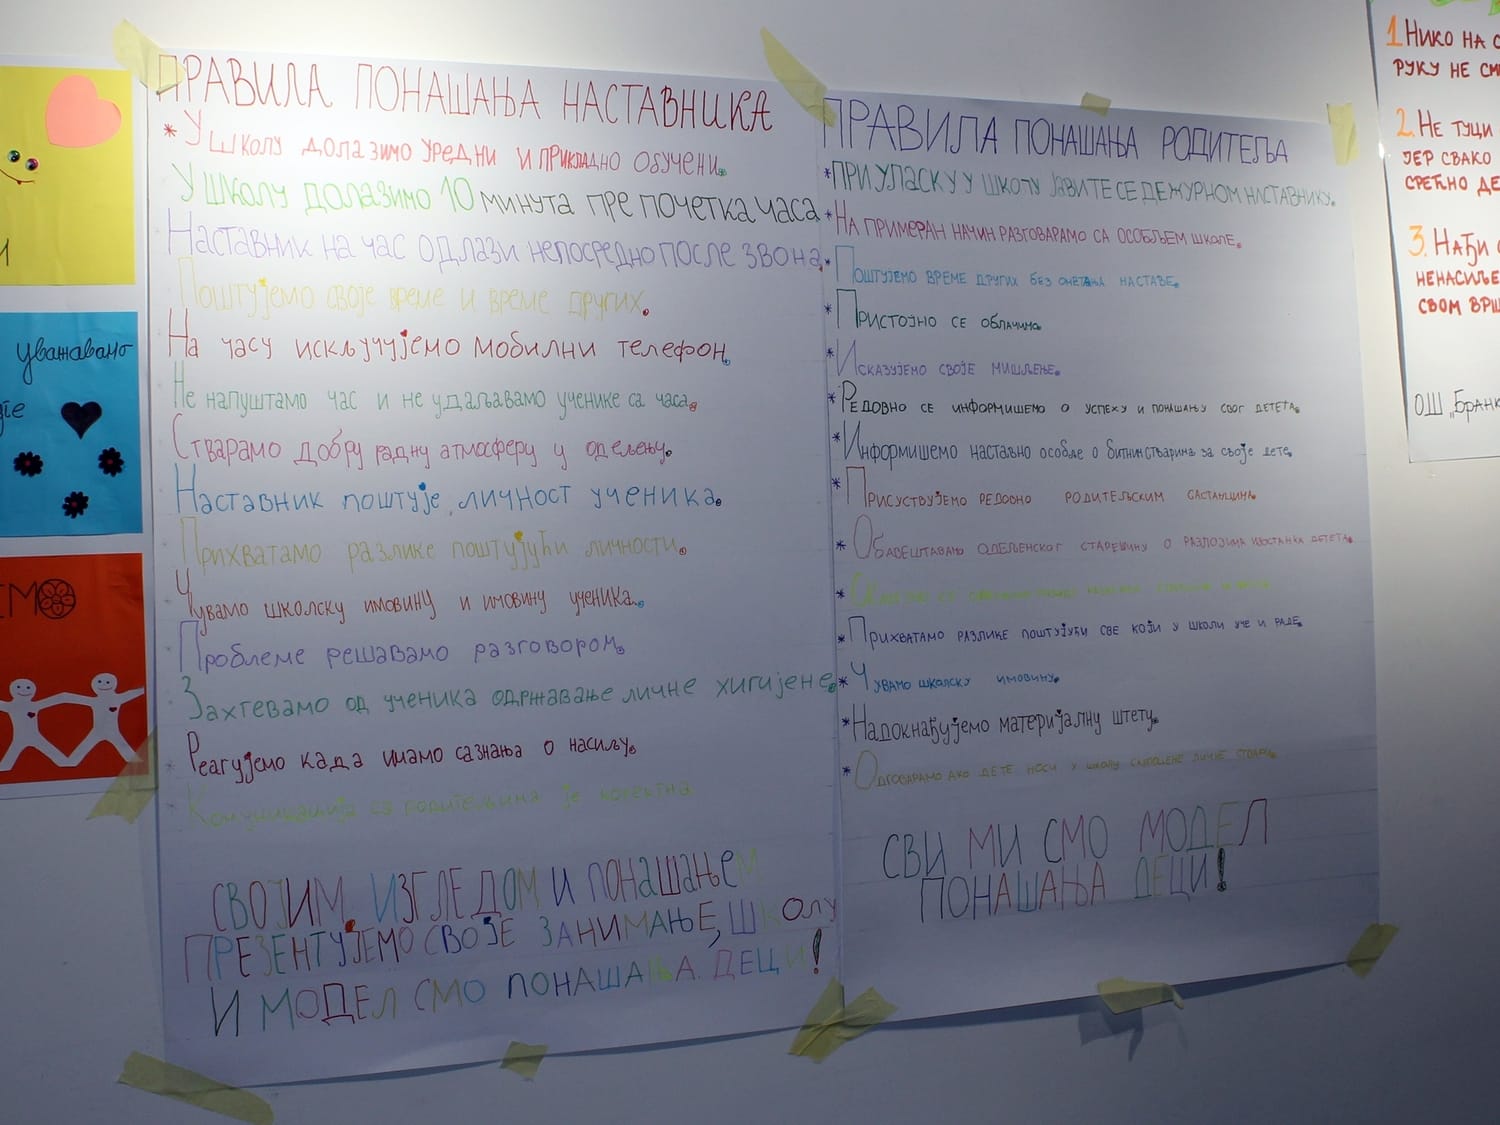 ПРАВИЛА ПОНАШАЊА НАСТАВНИКА
* У ШКОЛУ ДОЛАЗИМО УРЕДНИ И ПРИКЛАДНО ОБУЧЕНИ.
У ШКОЛУ ДОЛАЗИМО 10 МИНУТА ПРЕ ПОЧЕТКА ЧАСА
НАСТАВНИК НА ЧАС ОДЛАЗИ НЕПОСРЕДНО ПОСЛЕ ЗВОНА.
Поштујемо своје време и време других.
На часу искључујемо мобилни телефон.
Не напуштамо час и не удаљавамо ученике са часа.
Стварамо добру радну атмосферу у одељењу.
Наставник поштује личност ученика.
Прихватамо разлике поштујући личности.
Чувамо школску имовину и имовину ученика.
Проблеме решавамо разговором.
Захтевамо од ученика одржавање личне хигијене.
Реагујемо када имамо сазнања о насиљу.
Комуникација са родитељима је коректна
СВОЈИМ ИЗГЛЕДОМ И ПОНАШАЊЕМ
ПРЕЗЕНТУЈЕМО СВОЈЕ ЗАНИМАЊЕ, ШКОЛУ
И МОДЕЛ СМО ПОНАШАЊА ДЕЦИ!
ПРАВИЛА ПОНАШАЊА РОДИТЕЉА
* ПРИ УЛАСКУ У ШКОЛУ ЈАВИТЕ СЕ ДЕЖУРНОМ НАСТАВНИКУ.
* НА ПРИМЕРАН НАЧИН РАЗГОВАРАМО СА ОСОБЉЕМ ШКОЛЕ.
* ПОШТУЈЕМО ВРЕМЕ ДРУГИХ БЕЗ ОМЕТАЊА НАСТАВЕ.
* ПРИСТОЈНО СЕ ОБЛАЧИМО.
* ИСКАЗУЈЕМО СВОЈЕ МИШЉЕЊЕ.
* РЕДОВНО СЕ ИНФОРМИШЕМО О УСПЕХУ И ПОНАШАЊУ СВОГ ДЕТЕТА.
* ИНФОРМИШЕМО НАСТАВНО ОСОБЉЕ О БИТНИМ СТВАРИМА ЗА СВОЈЕ ДЕТЕ.
* ПРИСУСТВУЈЕМО РЕДОВНО РОДИТЕЉСКИМ САСТАНЦИМА.
* ОБАВЕШТАВАМО ОДЕЉЕНСКОГ СТАРЕШИНУ О РАЗЛОЗИМА ИЗОСТАНКА ДЕТЕТА.
*
* ПРИХВАТАМО РАЗЛИКЕ ПОШТУЈУЋИ СВЕ КОЈИ У ШКОЛИ УЧЕ И РАДЕ.
* ЧУВАМО ШКОЛСКУ ИМОВИНУ.
* НАДОКНАЂУЈЕМО МАТЕРИЈАЛНУ ШТЕТУ.
* ОДГОВАРАМО АКО ДЕТЕ НОСИ У ШКОЛУ ЛИЧНЕ СТВАРИ.
СВИ МИ СМО МОДЕЛ
ПОНАШАЊА ДЕЦИ!
И
уважавамо
ЕМО
1. НИКО НА
РУКУ НЕ
2. НЕ ТУЦИ
ЈЕР СВАКО
СРЕЋНО
3. НАЂИ
СВОМ
ОШ „Бранк